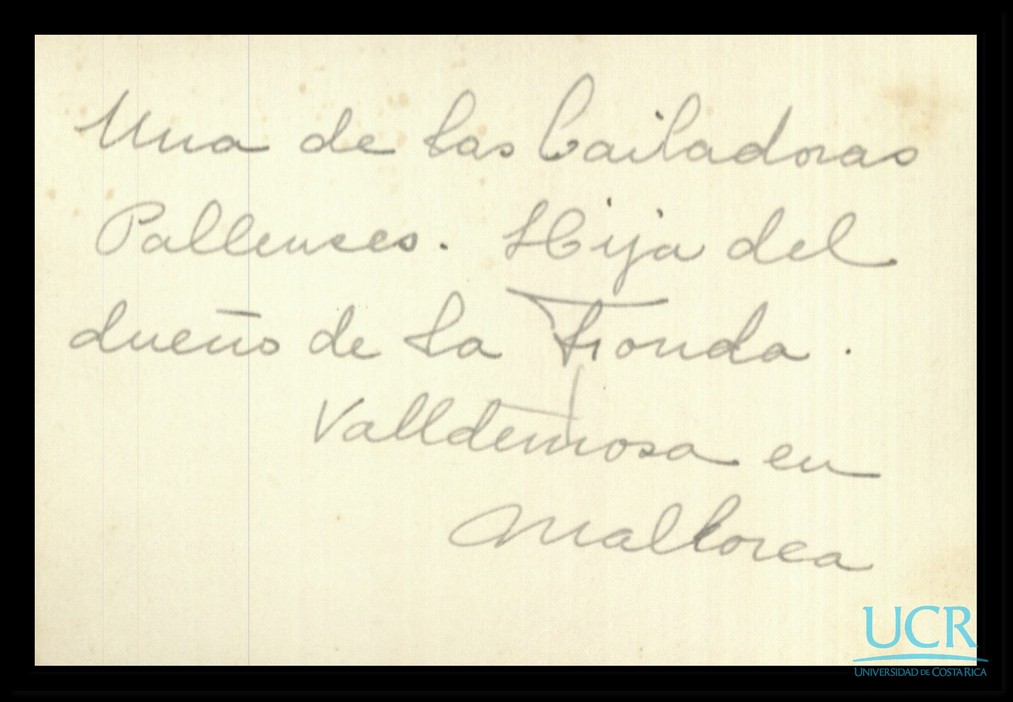 Una de las bailadoras
Pallenses. Hija del
dueño de la Fonda.
Valldemosa en
Mallorca
UCR
UNIVERSIDAD DE COSTA RICA